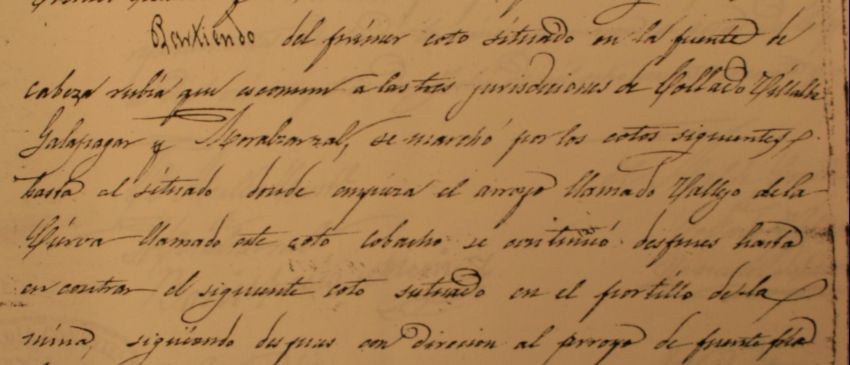 Partiendo del primer coto situado en la fuente de
cabeza rubia que es comun a las tres jurisdiciones de Collado Villalba
Galapagar y Moralzarzal, se marchó por los cotos siguientes
hasta el situado donde empieza el arroyo llamado Vallejo de la
Cierva llamado este coto cobacho se continuó despues hasta
encontrar el siguiente coto situado en el portillo de la
mina, siguiendo despues con direcion al arroyo de fuente fria